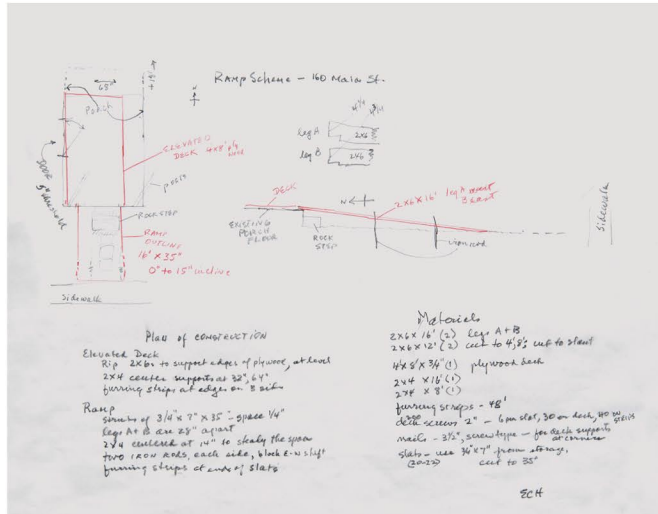 Ramp Scheme - 160 Main St.
63"
Porch
N
ELEVATED
DECK 4x8' ply
wood
DOOR
posts
ROCK STEP
RAMP
OUTLINE
16' x 35"
0" to 15" incline
Sidewalk
leg A
2x6
leg B
2x6
DECK
N
2x6x16' leg A west
B east
EXISTING
PORCH
FLOOR
ROCK
STEP
iron rod
Sidewalk
Plan of CONSTRUCTION
Elevated Deck
Rip 2x6s to support edges of plywood, at level
2x4 center supports at 32", 64"
furring strips at edges on 3 sides
Ramp
struts of 3/4" x 7" x 35" - space 1/4"
legs A + B are 28" apart
2x4 centered at 14" to steady the span
two IRON RODS, each side, block E-W shift
furring strips at ends of slats
Materials
2x6x16' (2) legs A+B
2x6x12' (2) cut to 4', 8', cut to slant
4'x8'x3/4" (1) plywood deck
2x4 x16' (1)
2x4 x 8' (1)
furring strips - 48'
deck screws 2" - 6 per slat, 30 on deck, 40 on strips
nails - 3 1/2", screw type - for deck supports
at corners
slats - use 3/4"x7" from storage,
(20-22) cut to 35"
ECH